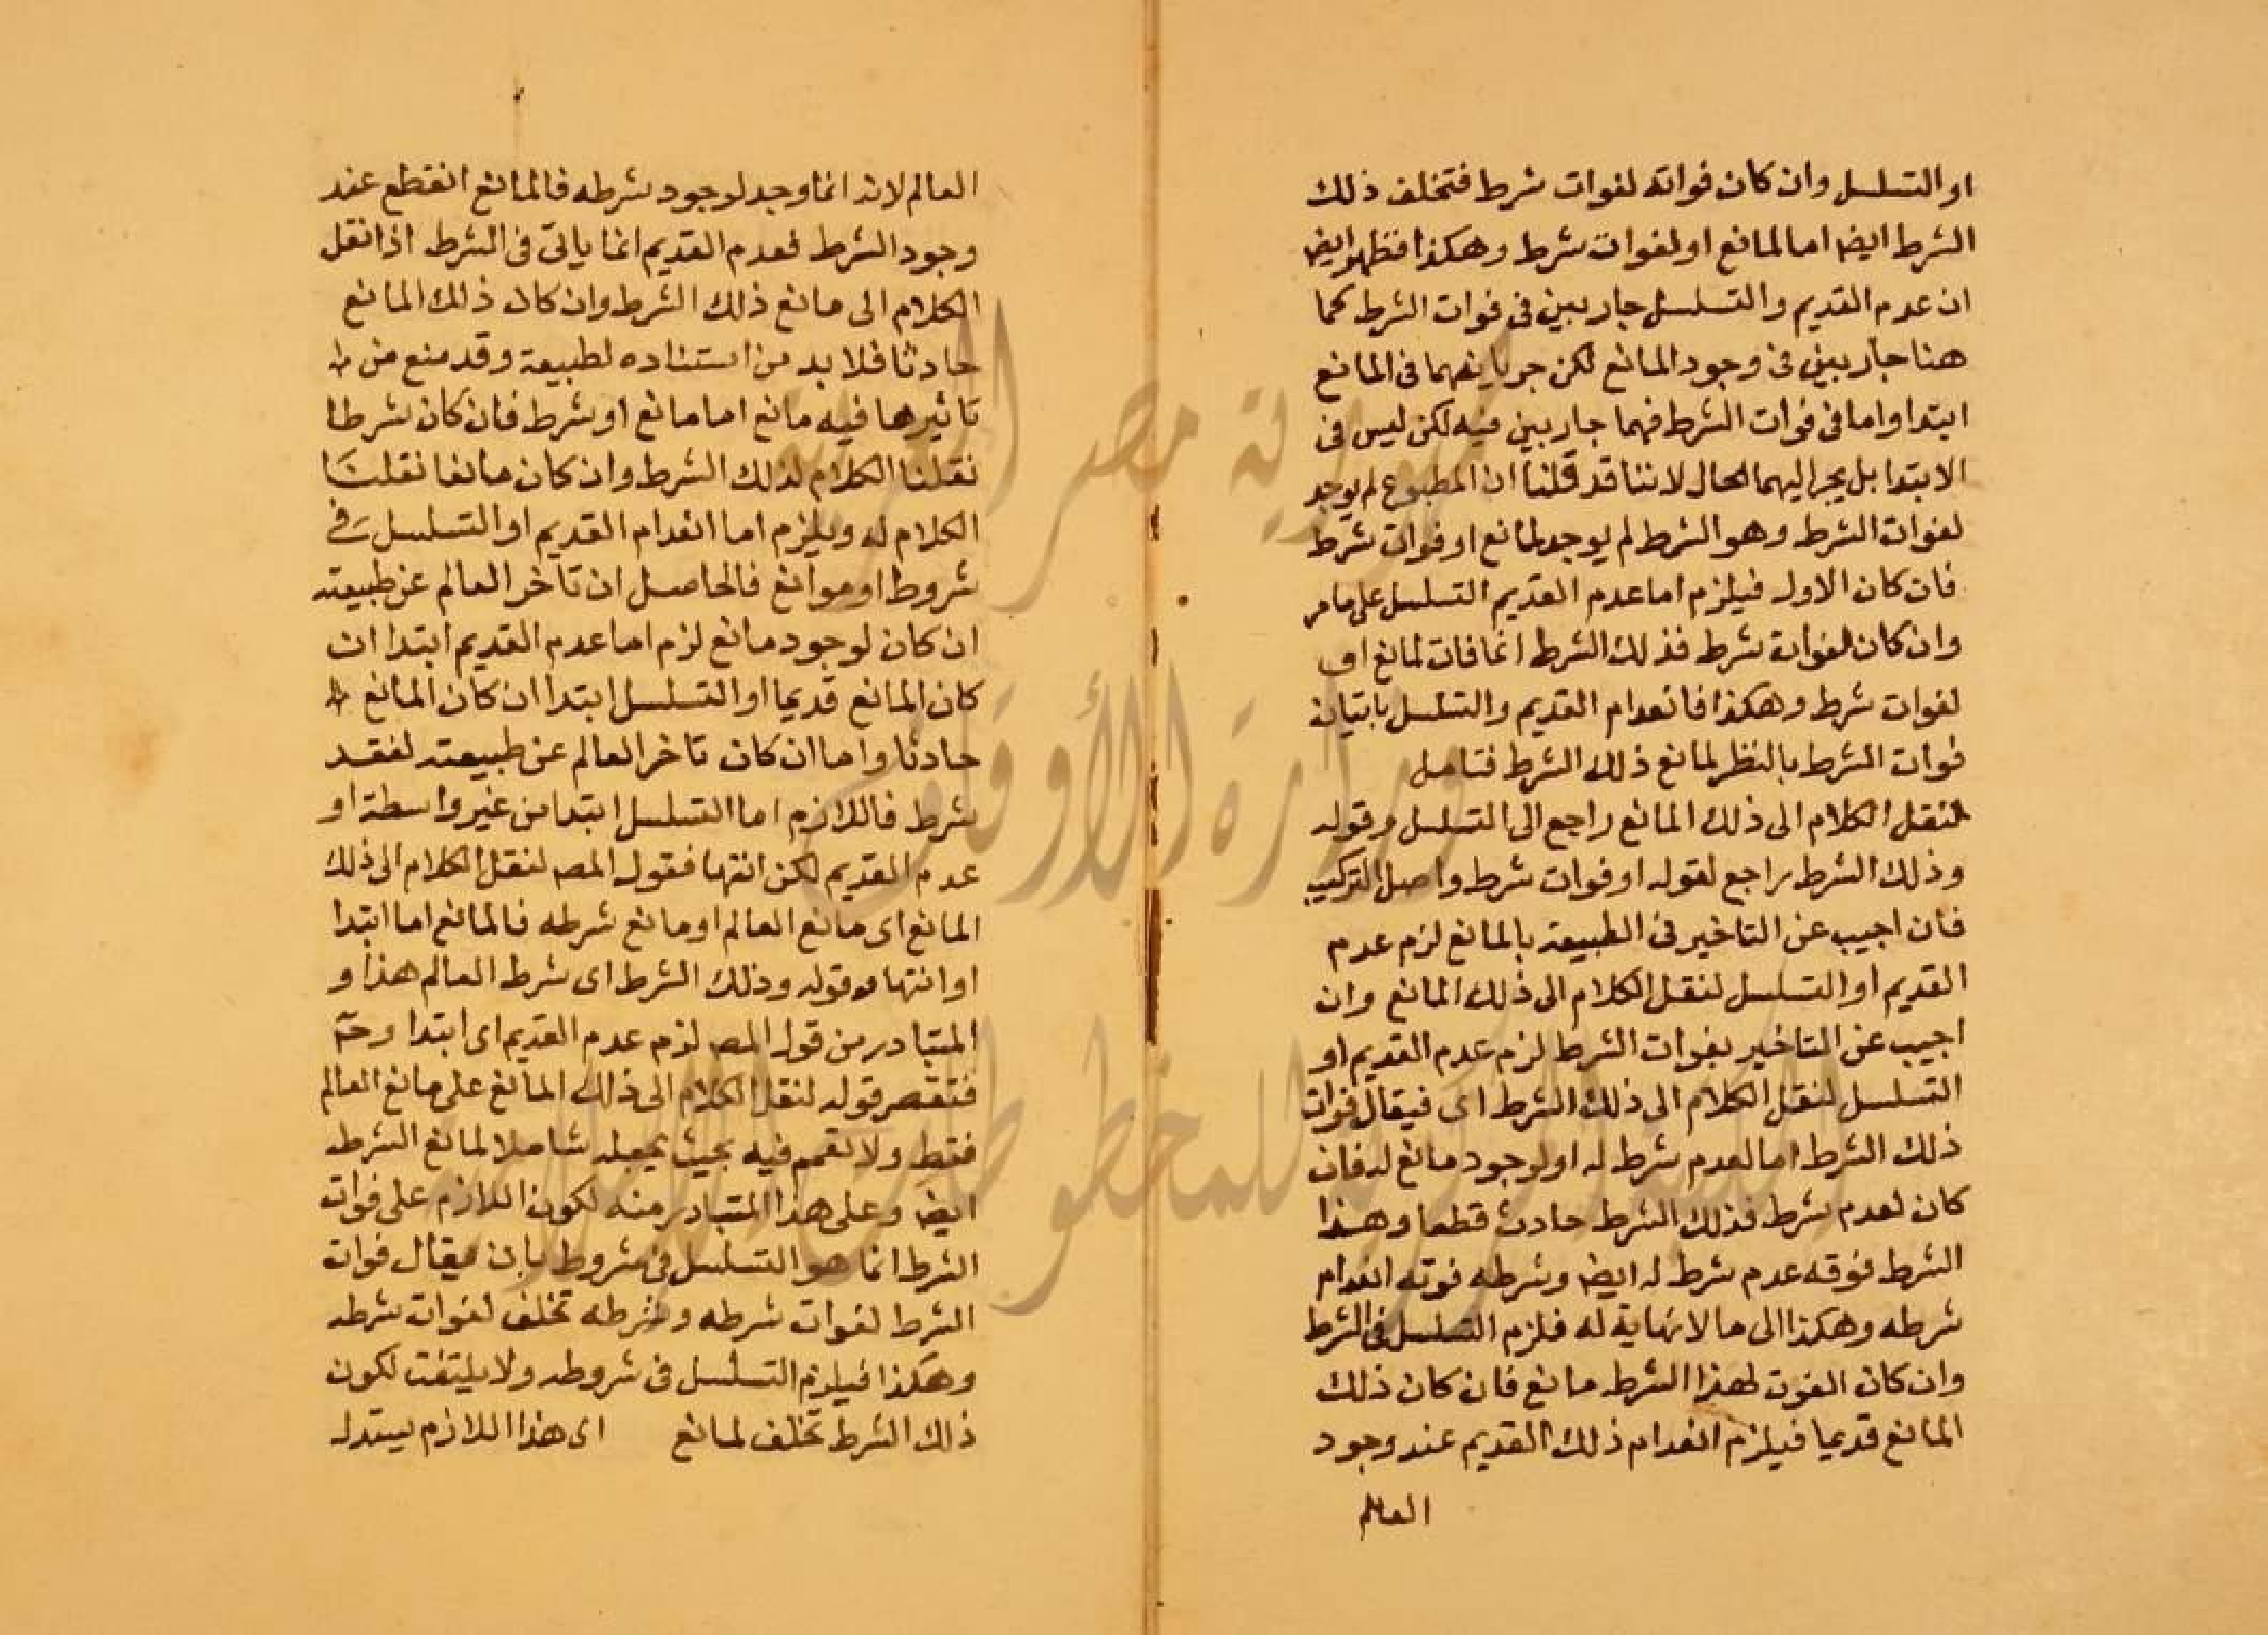 او التسلسل وان كان فواته لفوات شرط فتخلف ذلك
الشرط ايضا اما لمانع او لفوات شرط وهكذا فظهر ايضا
ان عدم القديم والتسلسل جاريين في فوات الشرط كما
هنا جاريين في وجود المانع لكن جريانهما في المانع
ابتدا واما في فوات الشرط فهما جاريين فيه لكن ليس في
الابتدا بل يجر اليهما الحال لاننا قد قلنا ان المطبوع لم يوجد
لفوات الشرط وهو الشرط لم يوجد لمانع او فوات شرط
فان كان الاول فيلزم اما عدم القديم التسلسل على ما مر
وان كان لفوات شرط فذلك الشرط انما فات لمانع او
لفوات شرط وهكذا فانعدام القديم والتسلسل ياتيان
فوات الشرط بالنظر لمانع ذلك الشرط فتامل
لنقل الكلام الى ذلك المانع راجع الى التسلسل وقوله
وذلك الشرط راجع لقوله او فوات شرط واصل التركيب
فان اجيب عن التاخير في الطبيعة بالمانع لزم عدم
القديم او التسلسل لنقل الكلام الى ذلك المانع وان
اجيب عن التاخير بفوات الشرط لزم عدم القديم او
التسلسل لنقل الكلام الى ذلك الشرط اى فيقال فوات
ذلك الشرط اما لعدم شرط له او لوجود مانع له فان
كان لعدم شرط فذلك الشرط حادث قطعا وهذا
الشرط فوقه عدم شرط له ايضا وشرطه فوته انعدام
شرطه وهكذا الى ما لا نهاية له فلزم التسلسل في الشرط
وان كان الفوت لهذا الشرط مانع فان كان ذلك
المانع قديما فيلزم انعدام ذلك القديم عند وجود
العالم
العالم لانه انما وجد لوجود شرطه فالمانع انقطع عند
وجود الشرط فعدم القديم انما ياتى في الشرط اذا نقل
الكلام الى مانع ذلك الشرط وان كان ذلك المانع
حادثا فلا بد من استناده لطبيعة وقد منع من
تاثيرها فيه مانع اما مانع او شرط فان كان شرطا
نقلنا الكلام لذلك الشرط وان كان مانعا نقلنا
الكلام له ويلزم اما انعدام القديم او التسلسل في
شروط او موانع فالحاصل ان تاخر العالم عن طبيعته
ان كان لوجود مانع لزم اما عدم القديم ابتدا ان
كان المانع قديما او التسلسل ابتدا ان كان المانع
حادثا واما ان كان تاخر العالم عن طبيعته لفقد
شرط فاللازم اما التسلسل ابتدا من غير واسطة او
عدم القديم لكن انتها فقول المص لنقل الكلام الى ذلك
المانع اى مانع العالم او مانع شرطه فالمانع اما ابتدا
او انتها وقوله وذلك الشرط اى شرط العالم هذا و
المتبادر من قول المص لزم عدم القديم اى ابتدا وح
فتقتصر قوله لنقل الكلام الى ذلك المانع على مانع العالم
فقط ولا تعمم فيه بحيث يجعله شاملا لمانع الشرط
ايضا وعلى هذا المتبادر منه لكون اللازم على فوات
الشرط انما هو التسلسل في شروط بان يقال فوات
الشرط لفوات شرطه وشرطه تخلف لفوات شرطه
وهكذا فيلزم التسلسل في شروطه ولا يلتفت لكون
ذلك الشرط تخلف لمانع اى هذا اللازم يبتدا
جمهورية مصر العربية
وزارة الأوقاف
المكتبة المركزية للمخطوطات الإسلامية